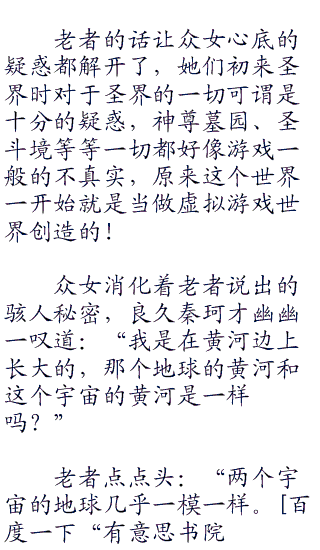 老者的话让众女心底的
疑惑都解开了，她们初来圣
界时对于圣界的一切可谓是
十分的疑惑，神尊墓园、圣
斗境等等一切都好像游戏一
般的不真实，原来这个世界
一开始就是当做虚拟游戏世
界创造的！
众女消化着老者说出的
骇人秘密，良久秦珂才幽幽
一叹道：“我是在黄河边上
长大的，那个地球的黄河和
这个宇宙的黄河是一样
吗？”
老者点点头：“两个宇
宙的地球几乎一模一样。[百
度一下“有意思书院